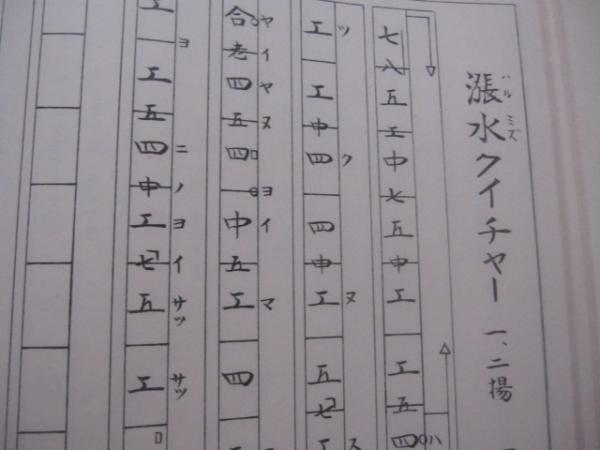 漲水クイチャー 一、二揚
ハル ミズ
七 八 五 工 中 七 五 中 工 工 五 四 ハ
工 工 中 四 四 中 工 五 七 工
ツ ク ヌ ス
合 老 四 五 四 中 五 工 四
ヤ イ ヤ ヌ ヨ イ マ
工 工 五 四 中 工 七 五 工
ヨ ニ ノ ヨ イ サッ サッ